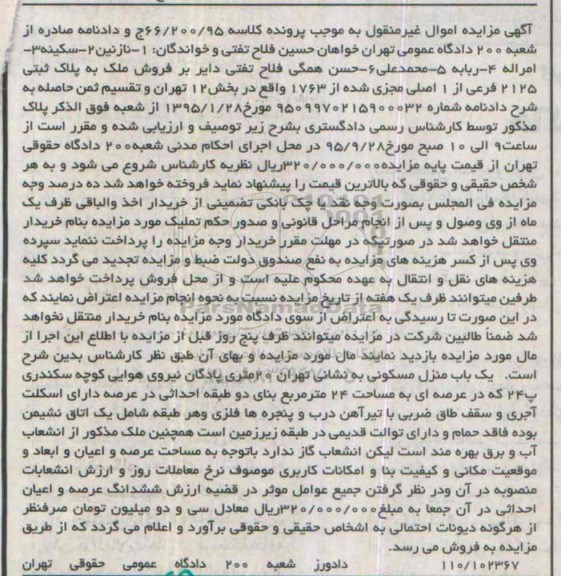 آگهی مزایده اموال غیرمنقول به موجب پرونده کلاسه ۶۶/۲۰۰/۹۵ج و دادنامه صادره از
شعبه ۲۰۰ دادگاه عمومی تهران خواهان حسین فلاح تفتی و خواندگان: ۱-نازنین۲-سکینه۳-
امراله ۴-ربابه ۵-محمدعلی۶-حسن همگی فلاح تفتی دایر بر فروش ملک به پلاک ثبتی
۲۱۲۵ فرعی از ۱ اصلی مجزی شده از ۱۷۶۳ واقع در بخش۱۲ تهران و تقسیم ثمن حاصله به
شرح دادنامه شماره ۹۵۰۹۹۷۰۲۱۵۹۰۰۰۳۲ مورخ۱۳۹۵/۱/۲۸ از شعبه فوق الذکر پلاک
مذکور توسط کارشناس رسمی دادگستری بشرح زیر توصیف و ارزیابی شده و مقرر است از
ساعت۹ الی ۱۰ صبح مورخ۹۵/۹/۲۸ در محل اجرای احکام مدنی شعبه۲۰۰ دادگاه حقوقی
تهران از قیمت پایه مزایده۳۲۰/۰۰۰/۰۰۰ریال نظریه کارشناس شروع می شود و به هر
شخص حقیقی و حقوقی که بالاترین قیمت را پیشنهاد نماید فروخته خواهد شد ده درصد وجه
مزایده فی المجلس بصورت وجه نقد یا چک بانکی تضمینی از خریدار اخذ والباقی ظرف یک
ماه از وی وصول و پس از انجام مراحل قانونی و صدور حکم تملیک مورد مزایده بنام خریدار
منتقل خواهد شد در صورتیکه در مهلت مقرر خریدار وجه مزایده را پرداخت ننماید سپرده
وی پس از کسر هزینه های مزایده به نفع صندوق دولت ضبط و مزایده تجدید می گردد کلیه
هزینه های نقل و انتقال به عهده محکوم علیه است و از محل فروش پرداخت خواهد شد
طرفین میتوانند ظرف یک هفته از تاریخ مزایده نسبت به نحوه انجام مزایده اعتراض نمایند که
در این صورت تا رسیدگی به اعتراض از سوی دادگاه مورد مزایده بنام خریدار منتقل نخواهد
شد ضمناً طالبین شرکت در مزایده میتوانند ظرف پنج روز قبل از مزایده با اطلاع این اجرا از
مال مورد مزایده بازدید نمایند مال مورد مزایده و بهای آن طبق نظر کارشناس بدین شرح
است. یک باب منزل مسکونی به نشانی تهران ۲۰متری پادگان نیروی هوایی کوچه سکندری
پ۲۴ که در عرصه ای به مساحت ۲۴ مترمربع بنای دو طبقه احداثی در عرصه دارای اسکلت
آجری و سقف طاق ضربی با تیرآهن درب و پنجره ها فلزی وهر طبقه شامل یک اتاق نشیمن
بوده فاقد حمام و دارای توالت قدیمی در طبقه زیرزمین است همچنین ملک مذکور از انشعاب
آب و برق بهره مند است لیکن انشعاب گاز ندارد باتوجه به مساحت عرصه و اعیان و ابعاد و
موقعیت مکانی و کیفیت بنا و امکانات کاربری موصوف نرخ معاملات روز و ارزش انشعابات
منصوبه در آن ودر نظر گرفتن جمیع عوامل موثر در قضیه ارزش ششدانگ عرصه و اعیان
احداثی در آن جمعا به مبلغ۳۲۰/۰۰۰/۰۰۰ریال معادل سی و دو میلیون تومان صرفنظر
از هرگونه دیونات احتمالی به اشخاص حقیقی و حقوقی برآورد و اعلام می گردد که از طریق
مزایده به فروش می رسد.
۱۱۰/۱۰۲۳۶۷ دادورز شعبه ۲۰۰ دادگاه عمومی حقوقی تهران